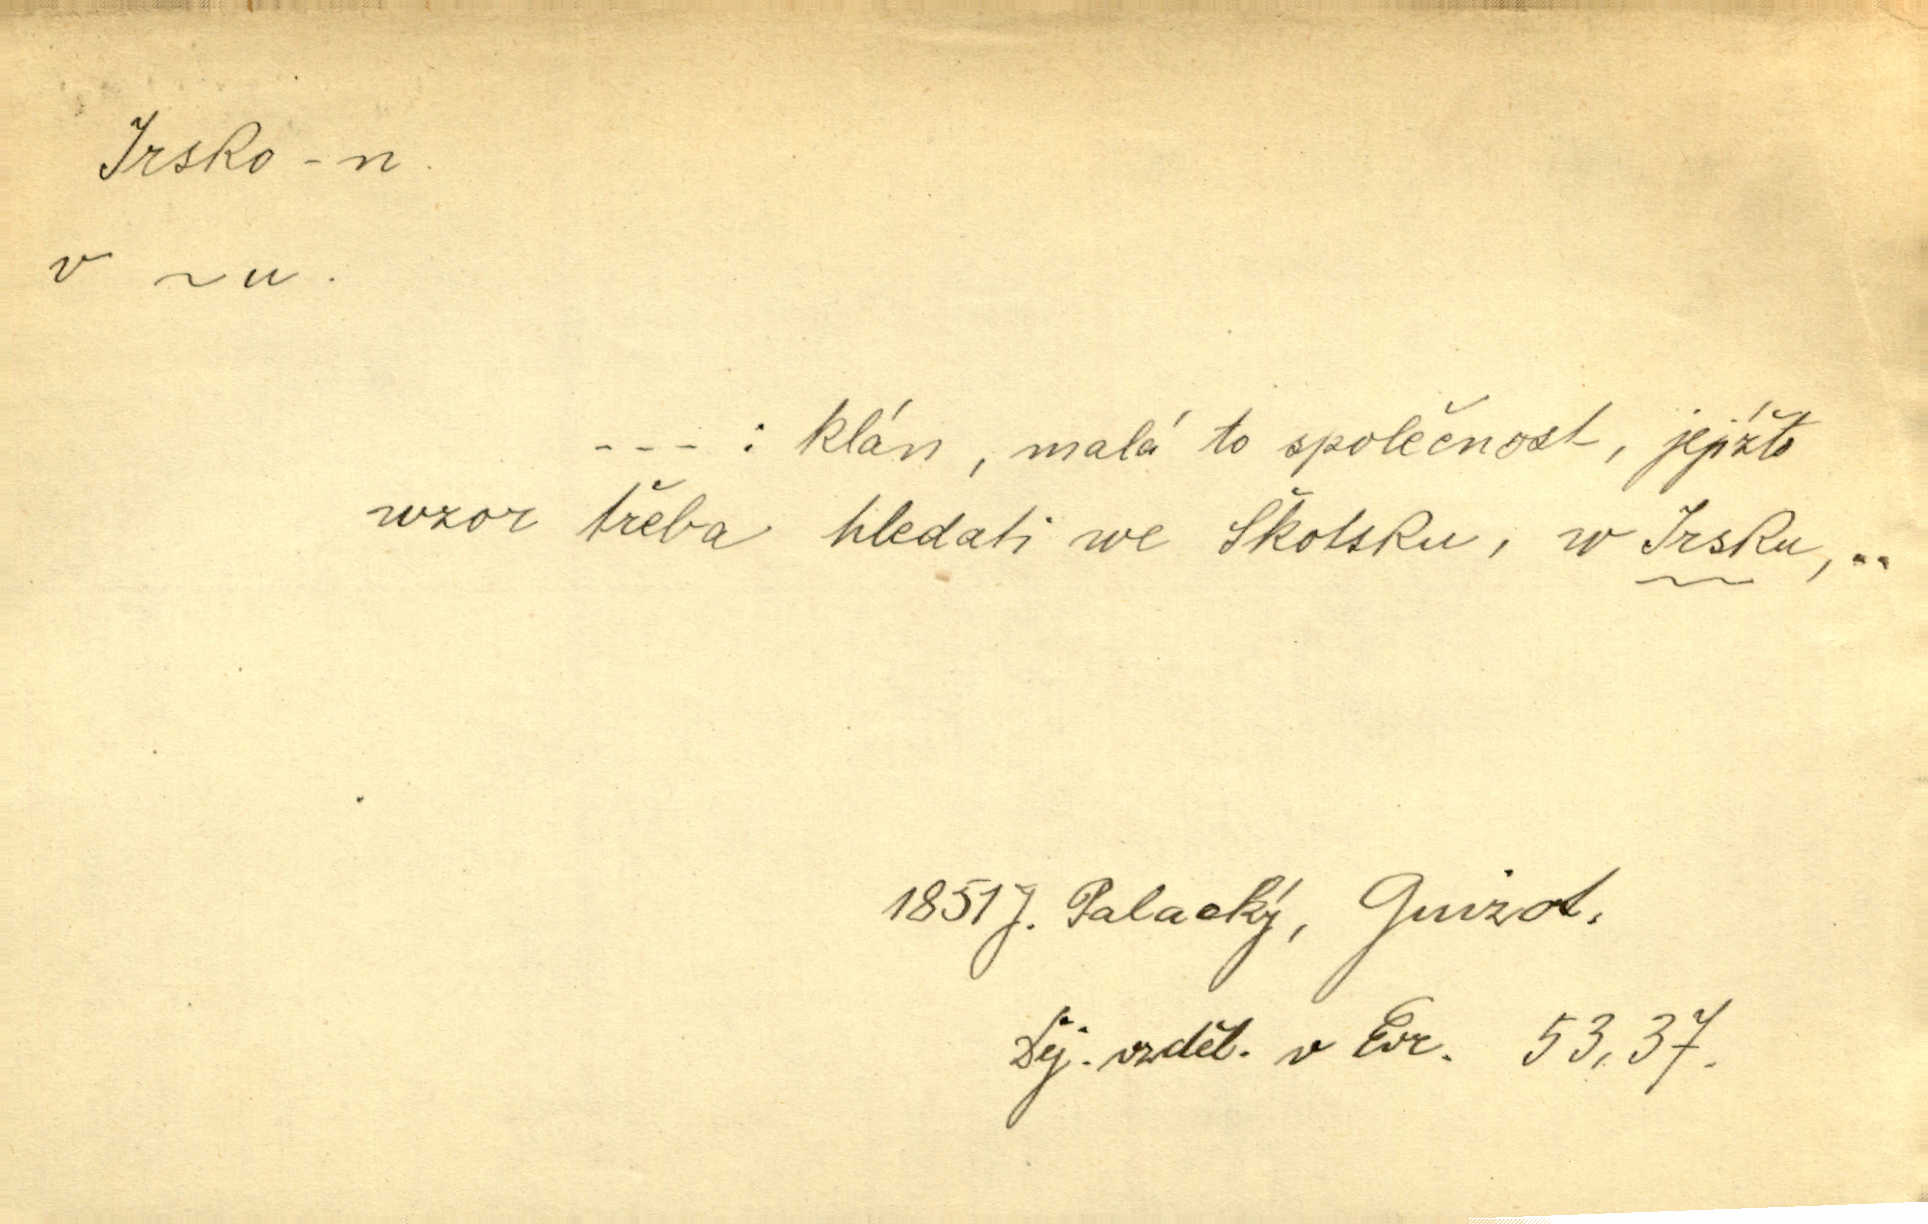 Irsko - n.
v ~ u.
- - - : klán, malá to společnost, jejížto
wzor třeba hledati we Škotsku, w Irsku, ..
1851 J. Palacký, Guizot.
Děj. vzděl. v Evr. 53, 37.